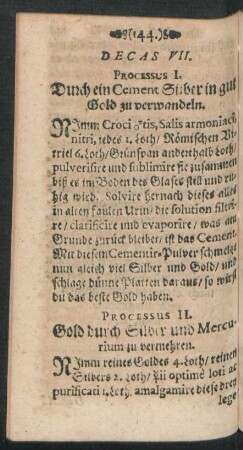 44.
DECAS VII.
PROCESSUS I.
Durch ein Cement Silber in gut
Gold zu verwandeln.
NImm Croci ♂tis, Salis armoniaci
nitri, jedes 1. Loth/ Römischen Vi-
triel 6. Loth/ Grünspan anderthalb Loth/
pulverisire und sublimire sie zusammen
biß es im Boden des Glases still und ru-
hig wird. Solvire hernach dieses alles
in alten faulen Urin/ die solution filtri-
re/ clarificire und evaporire/ was am
Grunde zurück bleibet/ ist das Cement.
Mit diesem Cementir-Pulver schmeltze
nun gleich viel Silber und Gold/ und
schlage dünne Platten daraus/ so wirst
du das beste Gold haben.
PROCESSUS II.
Gold durch Silber und Mercu-
rium zu vermehren.
NImm reines Goldes 4. Loth/ reinen
Silbers 2. Loth/ ☿ii optimè loti ac
purificati 1. Loth, amalgamire diese drey
lege